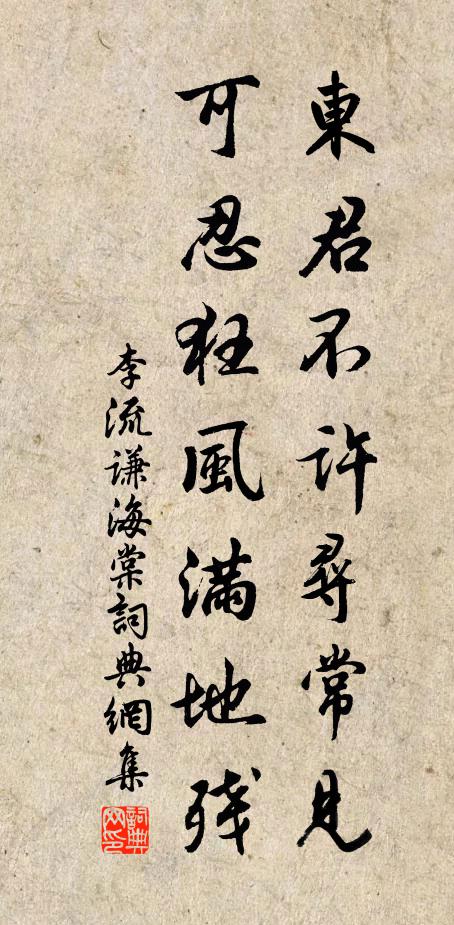 東君不許尋常見
可忍狂風滿地残
李流谦海棠詞典網集
詞典
网印